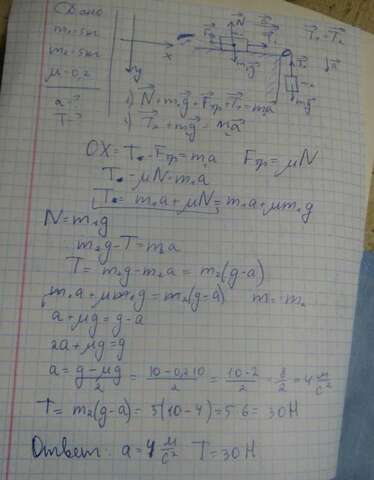 Дано
m₁=5кг
m₂=5кг
μ=0,2
a-?
T-?
x
y
N
T₁=T₂
m₁g
m₂g
a
1) N+m₁g+Fтр+T₁=m₁a
2) T₂+m₂g=m₂a
OX= T₁-Fтр=m₁a Fтр=μN
T₁=μN+m₁a
T₁=m₁a+μN=m₁a+μm₁g
N=m₁g
m₂g-T=m₂a
T=m₂g-m₂a=m₂(g-a)
m₁a+μm₁g=m₂(g-a) m₁=m₂
a+μg=g-a
2a+μg=g
a=(g-μg)/2=(10-0,2·10)/2=(10-2)/2=8/2=4 м/с²
T=m₂(g-a)=5(10-4)=5·6=30Н
Ответ: a=4 м/с² T=30Н